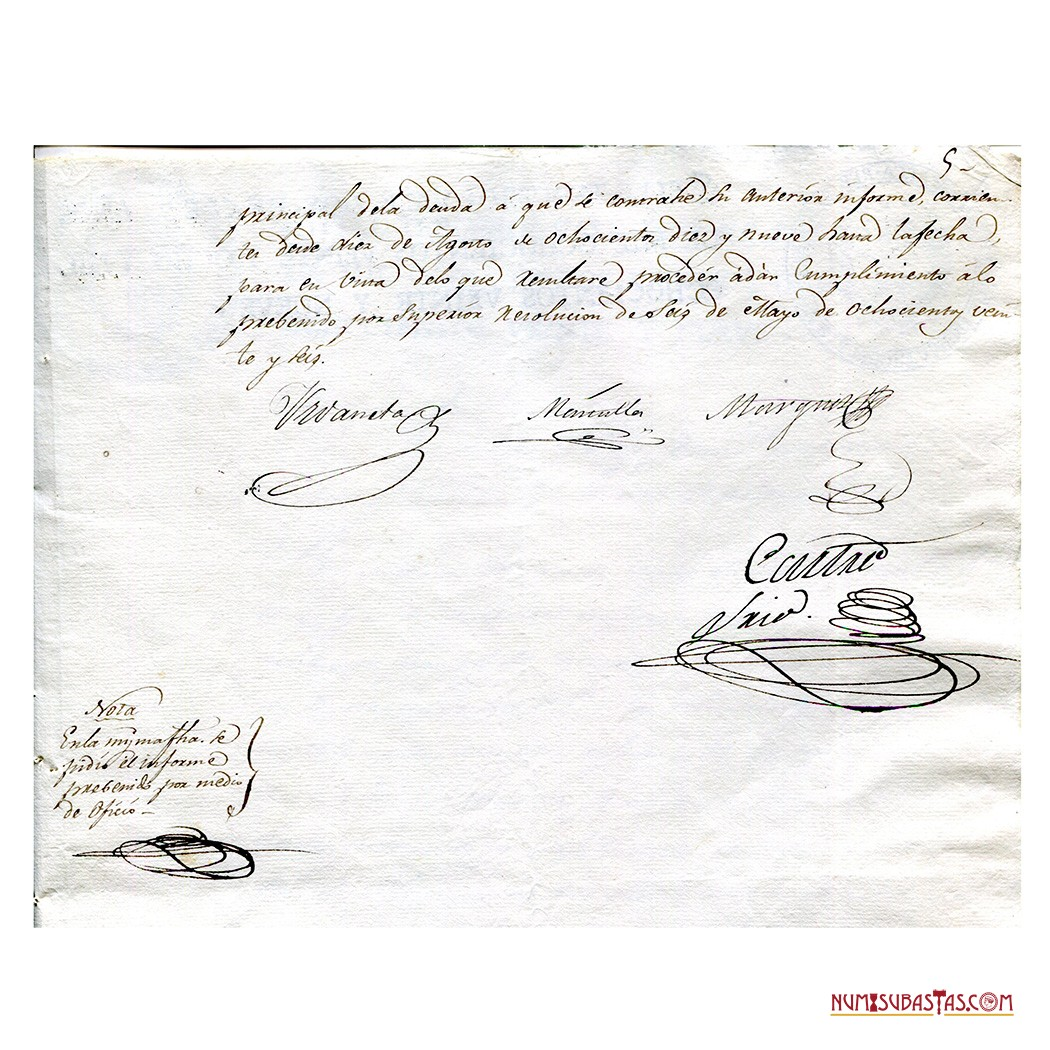 5
principal dela deuda á que se contrahe su anterior informe, corrien-
tes desde diez de Agosto de ochocientos diez y nueve hasta lafecha,
para en vista delo que resultare proceder ádar Cumplimiento álo
prebenido por Superior Resolucion de Seis de Mayo de ochocientos vein-
te y seis.
Urdaneta Mancilla Marquez
Castro
Srio.
Nota
Enla mismafha. se
pidio el informe
prebenido por medio
de Oficio
NUMISUBASTAS.COM